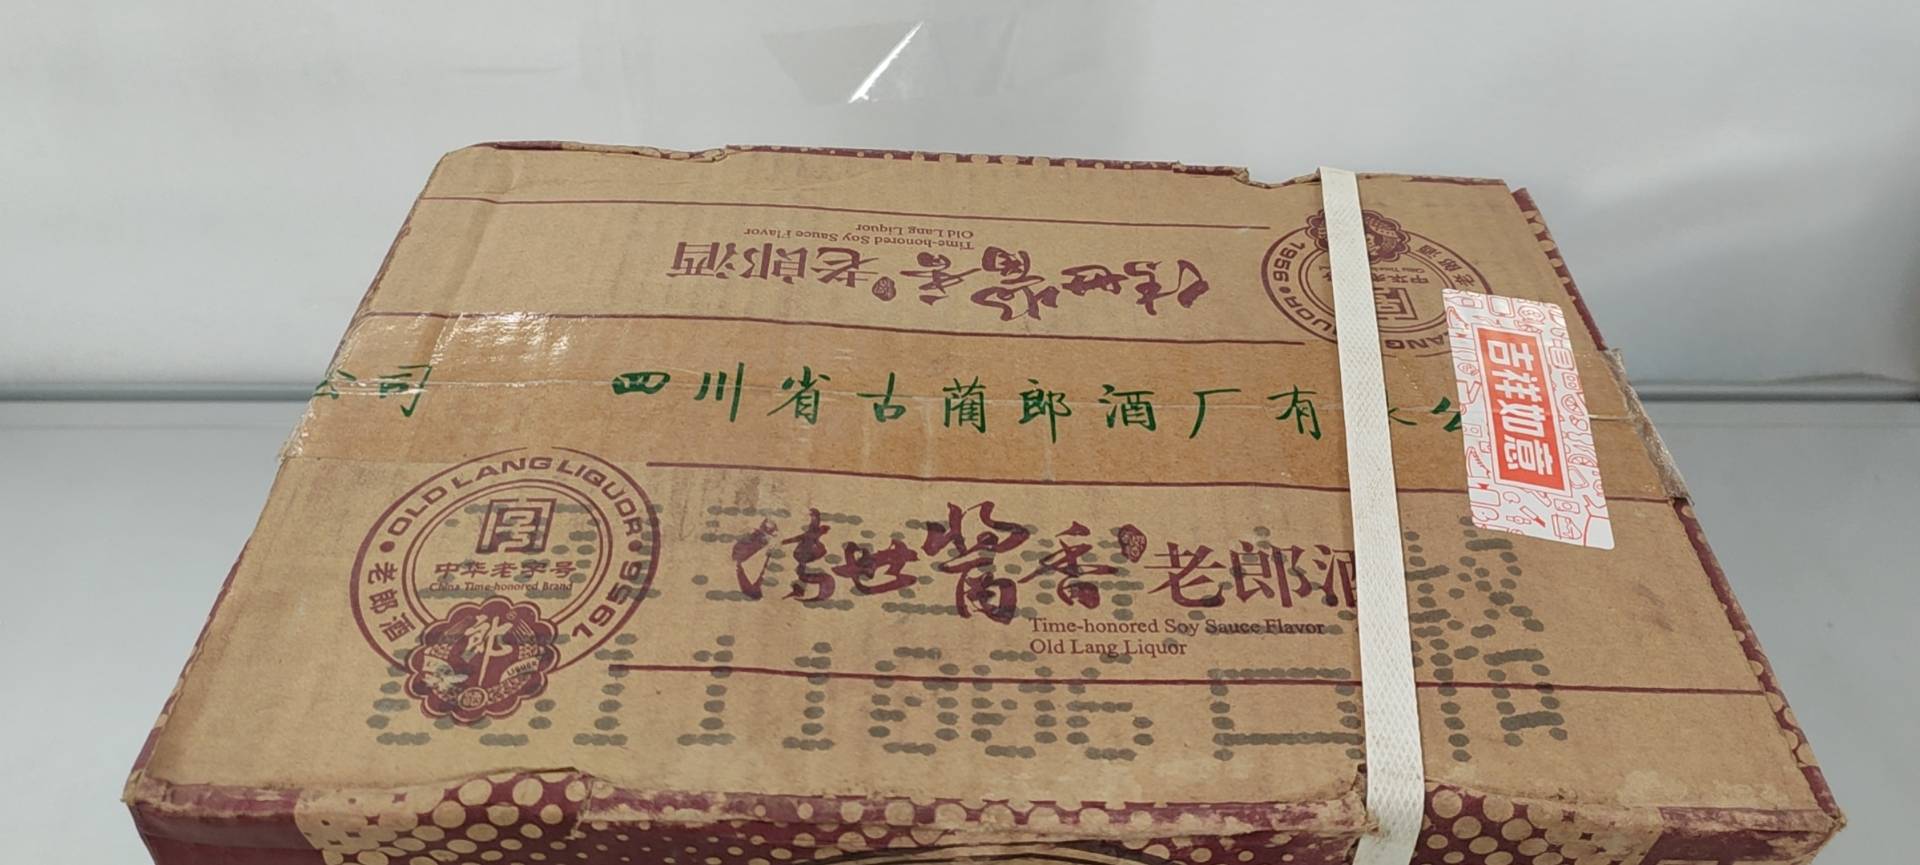 传世酱香老郎酒
Time-honored Soy Sauce Flavor
Old Lang Liquor
1956
老郎酒
中华老字号
公司 四川省古蔺郎酒厂有
吉祥如意
OLD LANG LIQUOR
老郎酒
1956
中华老字号
China Time-honored Brand
郎
传世酱香老郎酒
Time-honored Soy Sauce Flavor
Old Lang Liquor